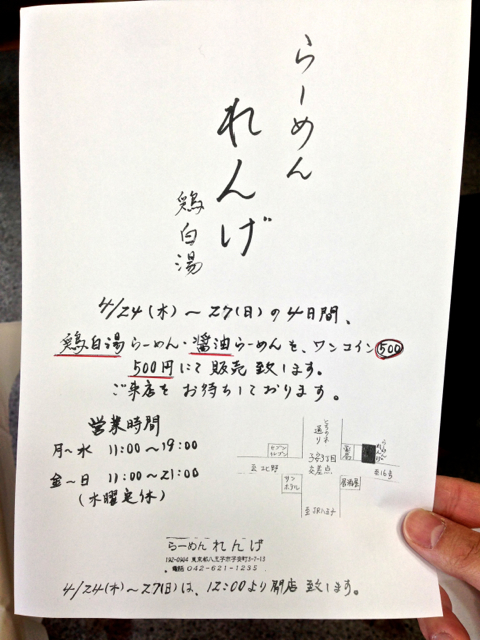 らーめん
れんげ
鶏白湯
4/24(木)〜27(日)の4日間、
鶏白湯らーめん・醤油らーめんを、ワンコイン500
500円にて販売致します。
ご来店をお待ちしております。
営業時間
月〜水 11:00〜19:00
金〜日 11:00〜21:00
(水曜定休)
通り
セブン
イレブン
子安3丁目
交差点
らーめん
れんげ
至北野
至16号
サン
ホテル
居酒屋
至JR八王子
らーめん れんげ
192-0904 東京都八王子市子安町3-7-13
電話 042-621-1235
4/24(木)〜27(日)は、12:00より開店致します。